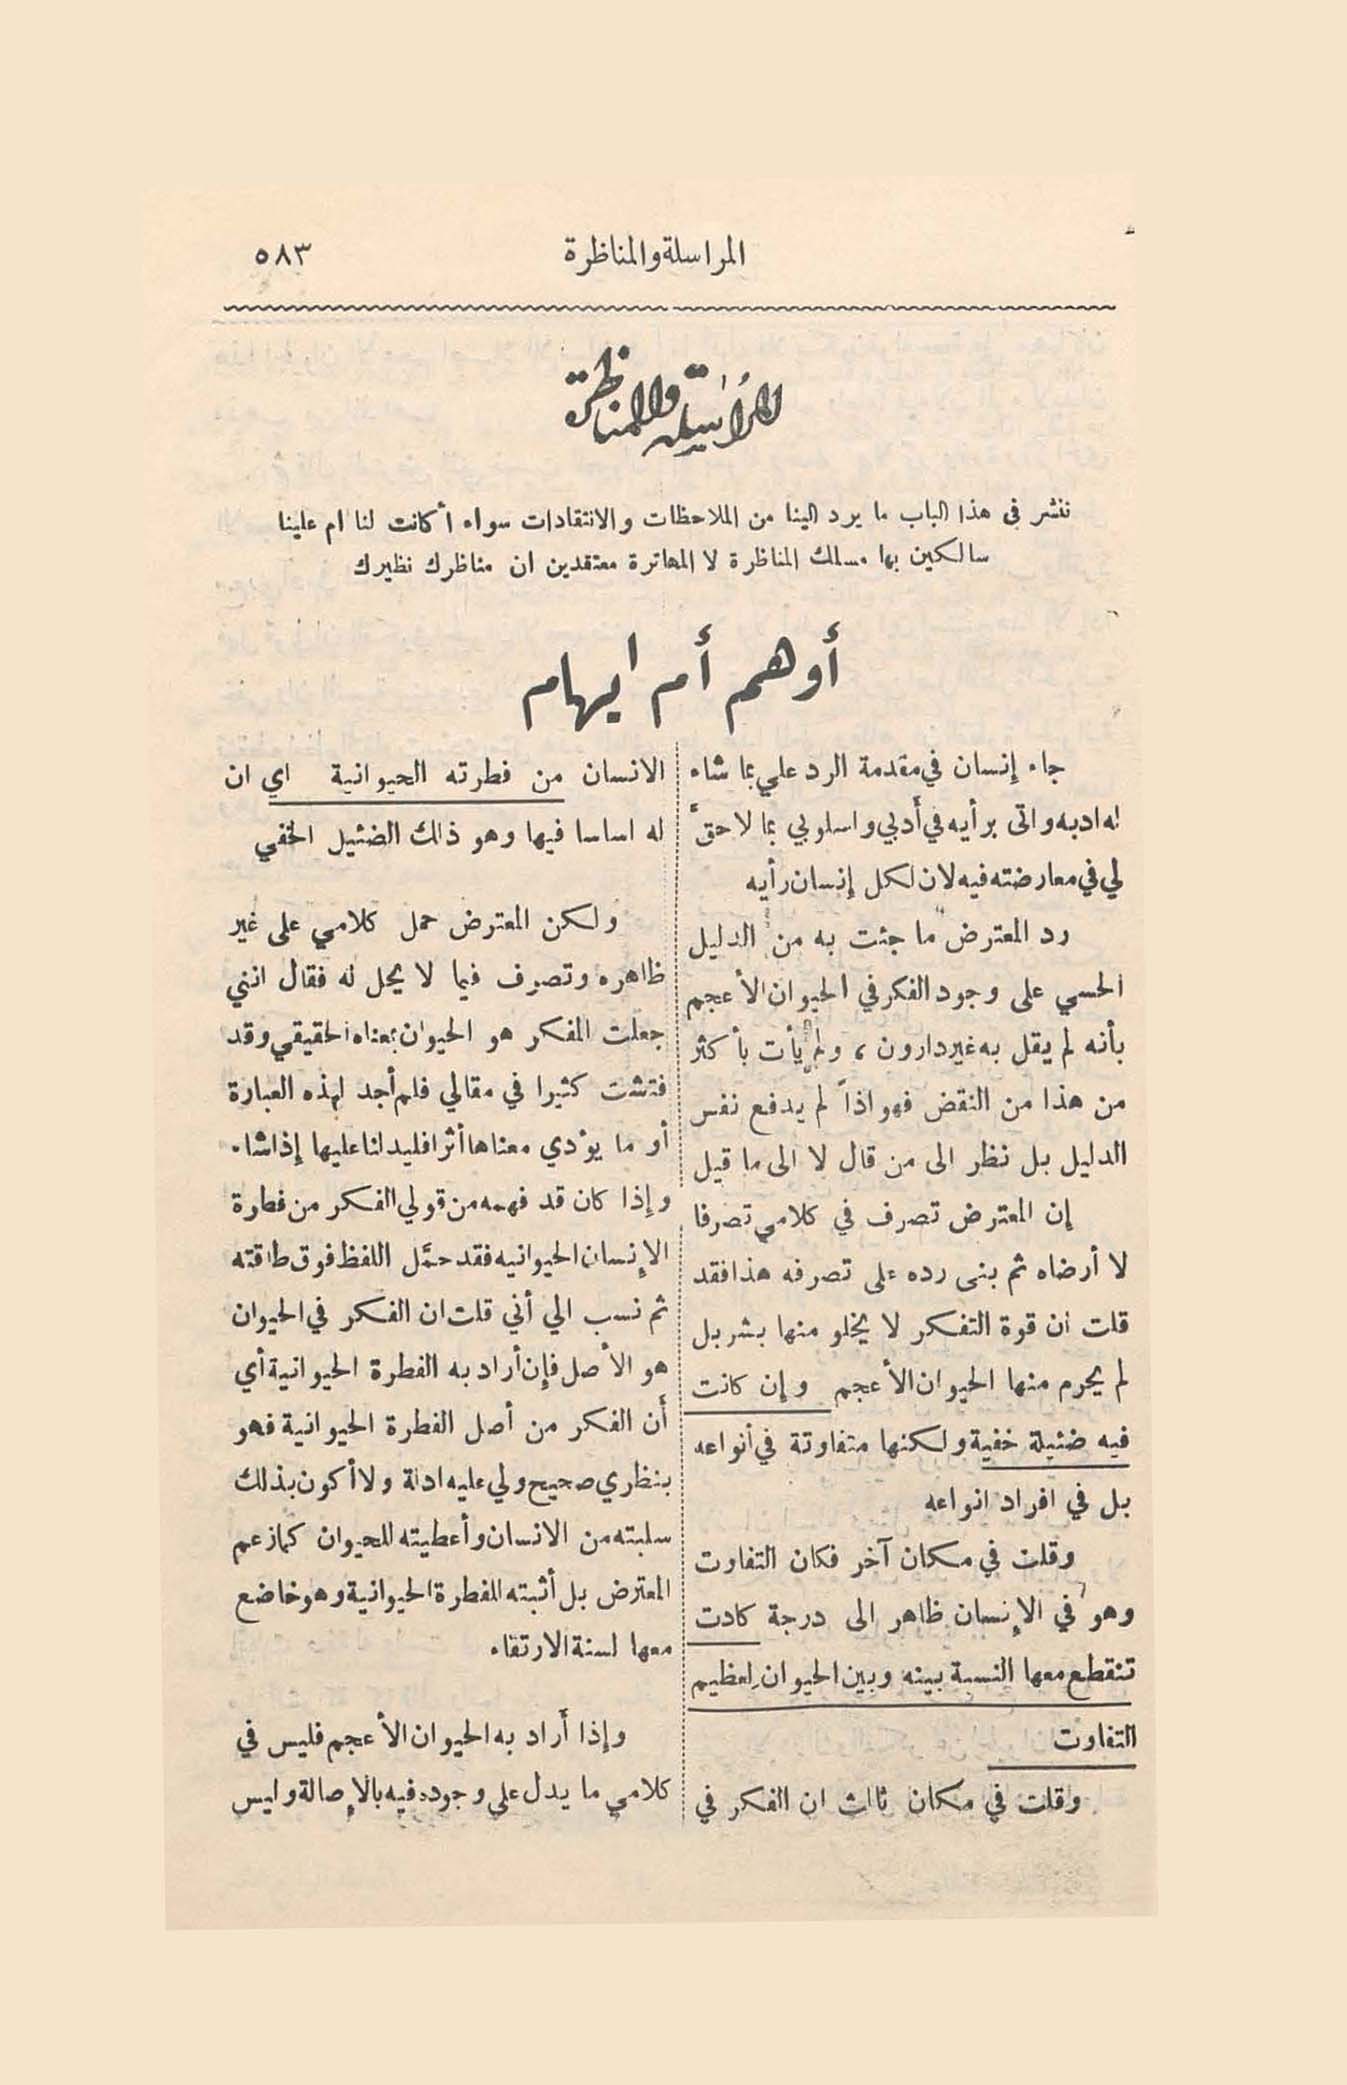 المراسلة والمناظرة
٥٨٣
المراسلة والمناظرة
ننشر في هذا الباب ما يرد الينا من الملاحظات والانتقادات سواء أكانت لنا ام علينا
سالكين بها مسلك المناظرة لا المهاترة معتقدين ان مناظرك نظيرك
أوهم أم ايهام
جاء إنسان في مقدمة الرد علي بما شاء
له ادبه واتى برأيه في أدبي واسلوبي بما لا حقَّ
لي في معارضته فيه لان لكل إنسان رأيه
رد المعترض ما جئت به من الدليل
الحسي على وجود الفكر في الحيوان الأعجم
بأنه لم يقل به غير دارون ، ولم يأت بأكثر
من هذا من النقض فهو اذاً لم يدفع نفس
الدليل بل نظر الى من قال لا الى ما قيل
إن المعترض تصرف في كلامي تصرفا
لا أرضاه ثم بنى رده على تصرفه هذا فقد
قلت ان قوة التفكر لا يخلو منها بشر بل
لم يحرم منها الحيوان الأعجم وإن كانت
فيه ضئيلة خفية ولكنها متفاوتة في أنواعه
بل في افراد انواعه
وقلت في مكان آخر فكان التفاوت
وهو في الإنسان ظاهر الى درجة كادت
تنقطع معها النسبة بينه وبين الحيوان لعظيم
التفاوت
وقلت في مكان ثالث ان الفكر في
الانسان من فطرته الحيوانية اي ان
له اساسا فيها وهو ذلك الضئيل الخفي
ولكن المعترض حمل كلامي على غير
ظاهره وتصرف فيما لا يحل له فقال انني
جعلت المفكر هو الحيوان بمعناه الحقيقي وقد
فتشت كثيرا في مقالي فلم أجد لهذه العبارة
أو ما يؤدي معناها أثرا فليدلنا عليها إذا شاء
وإذا كان قد فهمه من قولي الفكر من فطرة
الإنسان الحيوانيه فقد حمَّل اللفظ فوق طاقته
ثم نسب الي أني قلت ان الفكر في الحيوان
هو الأصل فإن أراد به الفطرة الحيوانية أي
أن الفكر من أصل الفطرة الحيوانية فهو
بنظري صحيح ولي عليه ادلة ولا أكون بذلك
سلبته من الانسان وأعطيته للحيوان كما زعم
المعترض بل أثبته للفطرة الحيوانية وهو خاضع
معها لسنة الارتقاء
وإذا أراد به الحيوان الأعجم فليس في
كلامي ما يدل على وجوده فيه بالإصالة وليس